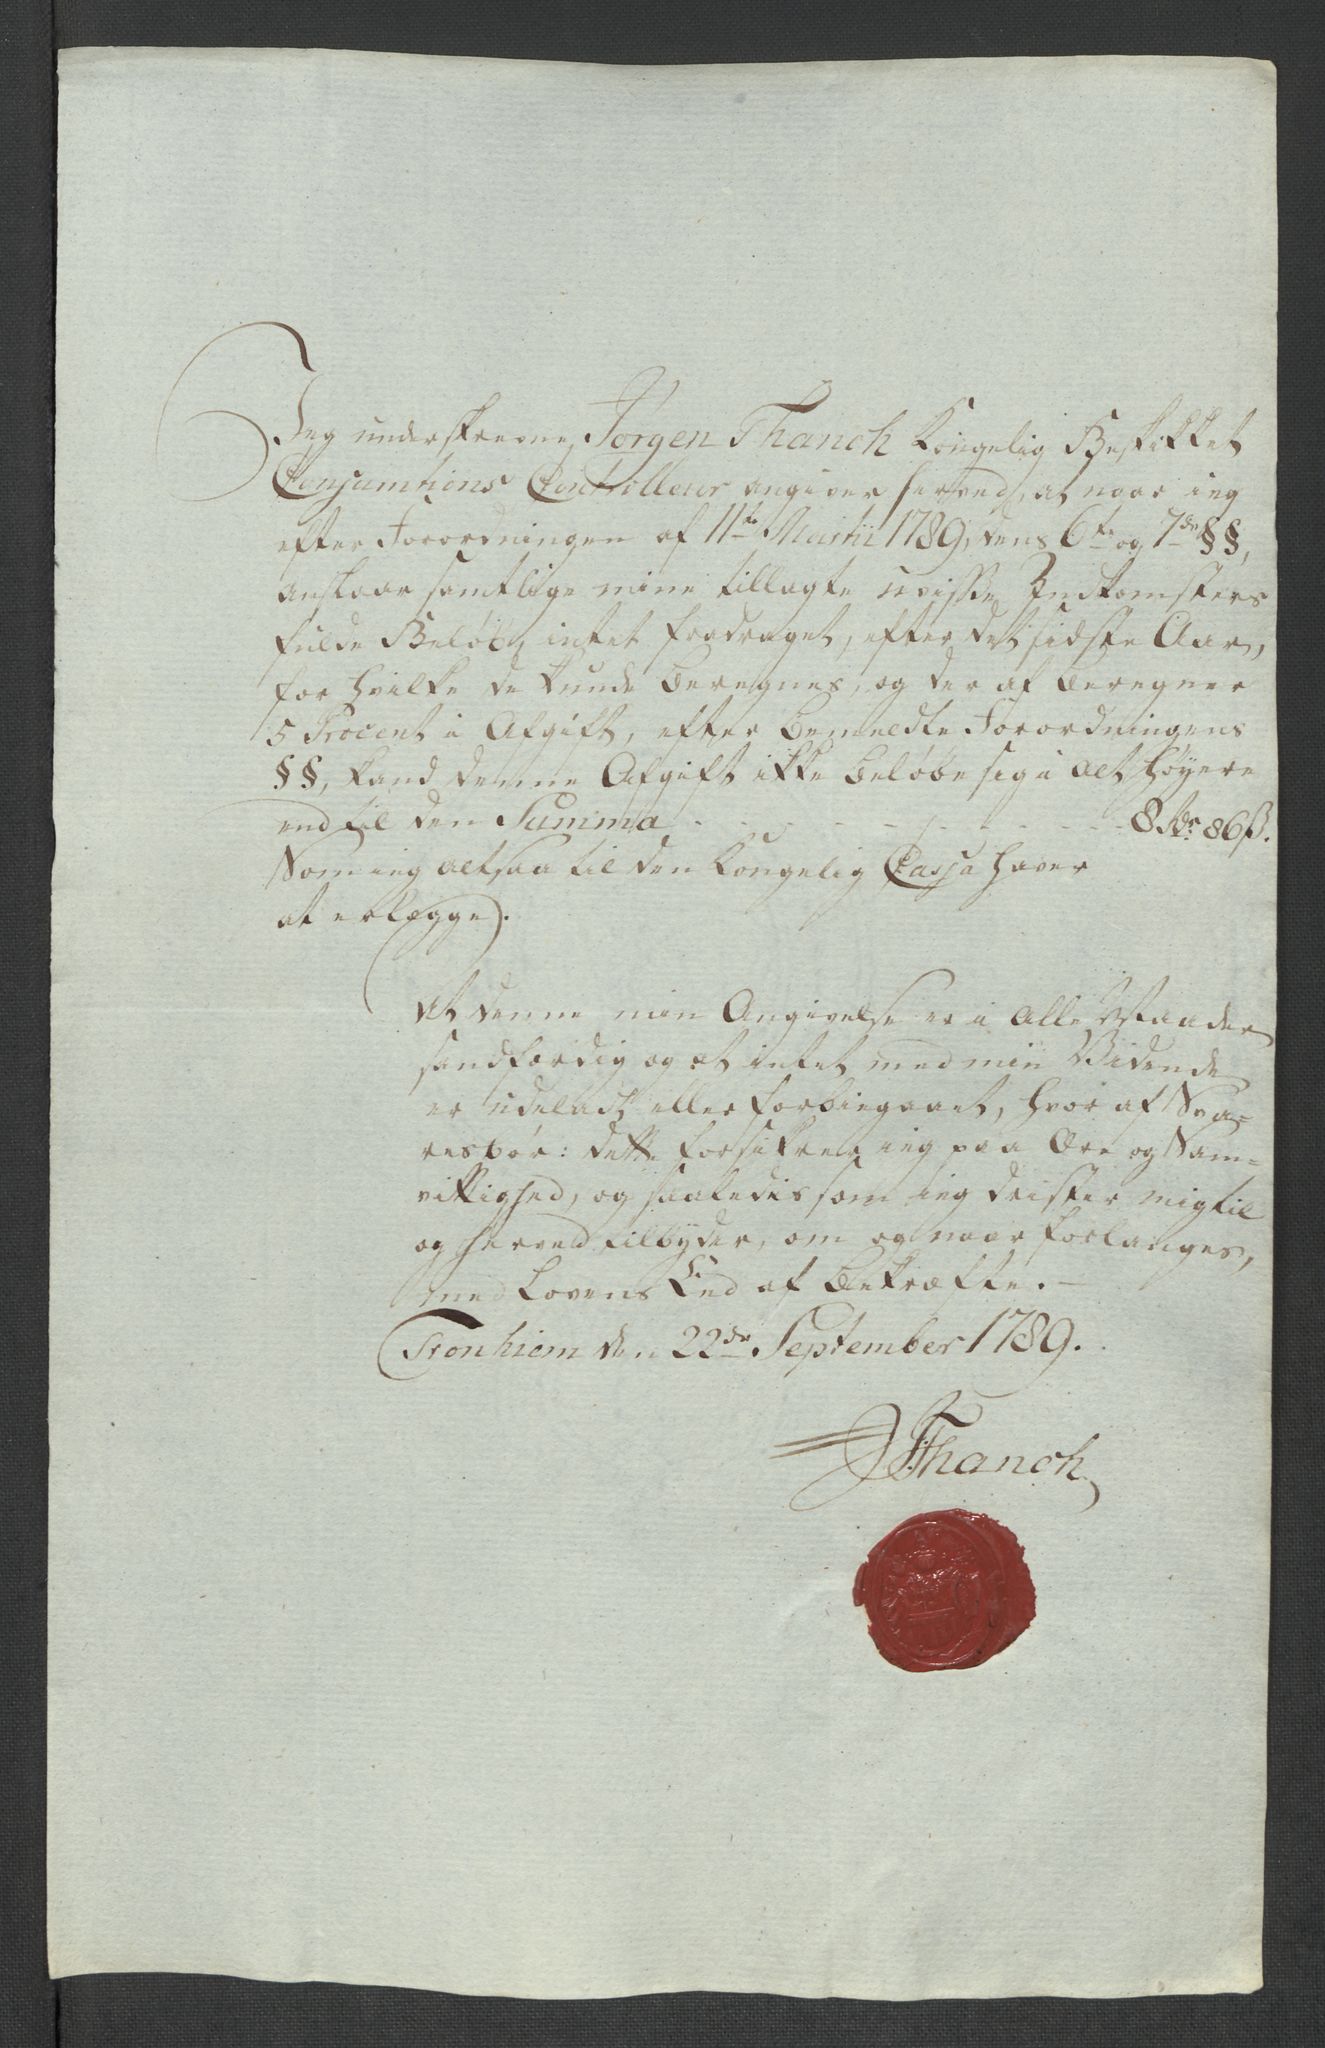 Jeg underskrevne, Jørgen Thanch Kongelig Bestikket
Consumtions Controlleur angiver herved, at naar ieg
efter Forordningen af 11te Martii 1789, dens 6te og 7de §§,
anslaar samtlige mine tillagte uvisse Indkomsters
fulde Beløb, intet fradraget, efter det sidste Aar,
for hvilke de kunde beregnes, og der af beregner
5 Procent i Afgift, efter bemeldte Forordningens
§§, kand denne Afgift ikke beløbe sig i alt høyere
end til den Summa - - - - - - - 8 Rdr 86 ß.
Som ieg altsaa til den Kongelig Cassa haver
at erlægge.
At denne min Angivelse er i alle Maader
sandfærdig og at intet med min Vidende
er udeladt eller forbiegaaet, hvor af Sva-
res bør: dette forsikrer ieg paa Ære og Sam-
vittighed, og saaledis som ieg drister mig til
og herved tilbyder, om og naar forlanges,
med Lovens Eed af bekræfte. -
Tronhiem den 22de September 1789.
JThanch